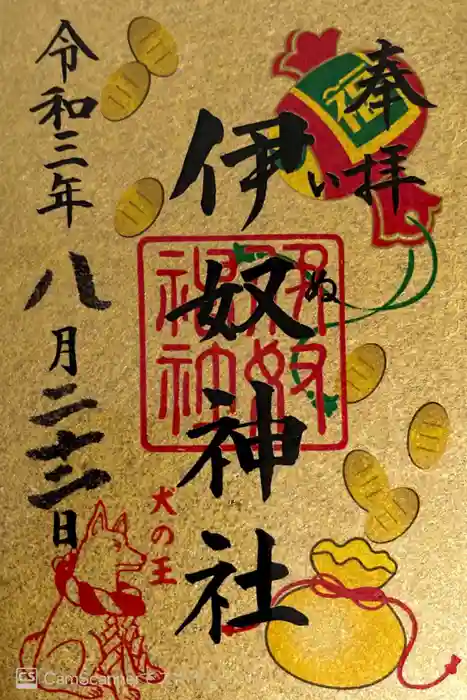 奉拝
福
伊奴神社
いぬ
令和三年八月二十二日
犬の王
CS CamScanner